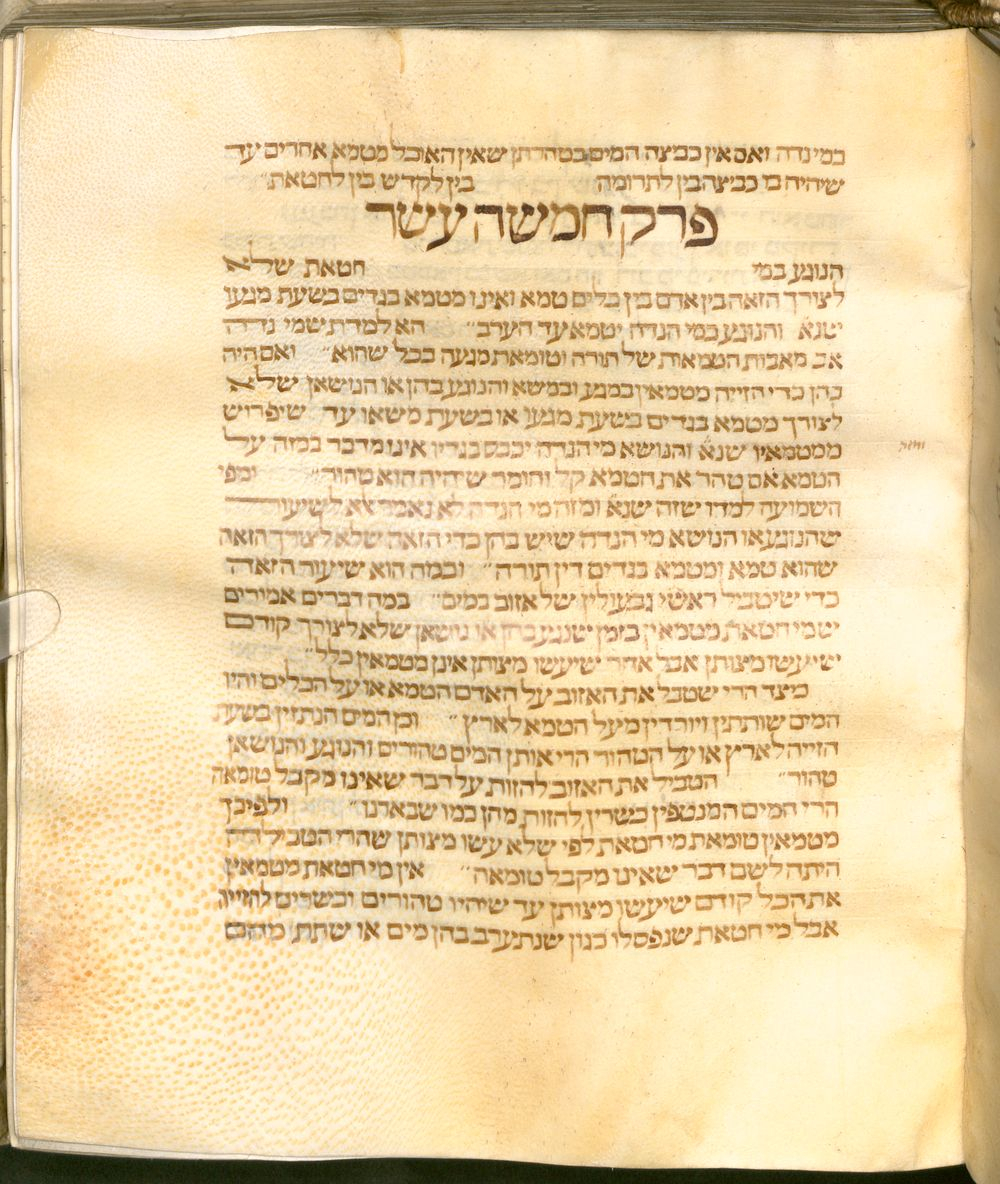 במי נדה ואם אין כביצה המים בטהרתן שאין האוכל מטמא אחרים עד
שיהיה בו כביצה בין לתרומה בין לקדש בין לחטאת״
פרק חמשה עשר
הנוגע במי חטאת שלא
לצורך הזאה בין אדם בין כלים טמא ואינו מטמא בגדים בשעת מגעו
שנא׳ והנוגע במי הנדה יטמא עד הערב״ הא למדת שמי נדה
אב מאבות הטמאות של תורה וטומאת מגעה בכל שהוא״ ואם היה
בהן כדי הזייה מטמאין במגע ובמשא והנוגע בהן או הנושאן שלא
לצורך מטמא בגדים בשעת מגעו או בשעת משאו עד שיפרוש
ממטמאיו שנא׳ והנושא מי הנדה יכבס בגדיו אינו מדבר במזה על
הטמא אם טהר את הטמא קל וחומר שיהיה הוא טהור״ ומפי
השמועה למדו שזה שנא׳ ומזה מי הנדה לא נאמר אלא לשיעור
שהנוגע או הנושא מי הנדה שיש בהן כדי הזאה שלא לצורך הזאה
שהוא טמא ומטמא בגדים דין תורה״ וכמה הוא שיעור הזאה
כדי שיטביל ראשי גבעולין של אזוב במים״ במה דברים אמורים
שמי חטאת מטמאין בזמן שנגע בהן או נושאן שלא לצורך קודם
שיעשו מצותן אבל אחר שיעשו מצותן אינן מטמאין כלל״
כיצד הרי שטבל את האזוב על האדם הטמא או על הכלים והיו
המים שותתין ויורדין מעל הטמא לארץ״ וכן המים הנתזין בשעת
הזייה לארץ או על הטהור הרי אותן המים טהורים והנוגע והנושאן
טהור״ הטביל את האזוב להזות על דבר שאינו מקבל טומאה
הרי המים המנטפין כשרין להזות מהן כמו שבארנו״ ולפיכך
מטמאין טומאת מי חטאת לפי שלא עשו מצותן שהרי הטבילה
היתה לשם דבר שאינו מקבל טומאה״ אין מי חטאת מטמאין
את הכל קודם שיעשו מצותן עד שיהיו טהורים וכשרים להזייה
אבל מי חטאת שנפסלו כגון שנתערב בהן מים או שתת מהם